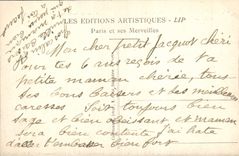 LES EDITIONS ARTISTIQUES - LIP
Paris et ses Merveilles
Mon cher petit Jacquot chéri
Pour tes 6 ans reçois de ta
petite maman chérie, tous
ses bons baisers et les meilleures
caresses Soit toujours bien
sage et bien obeissant et maman
sera bien contente j'ai hate
d'aller t'embrasser bien fort